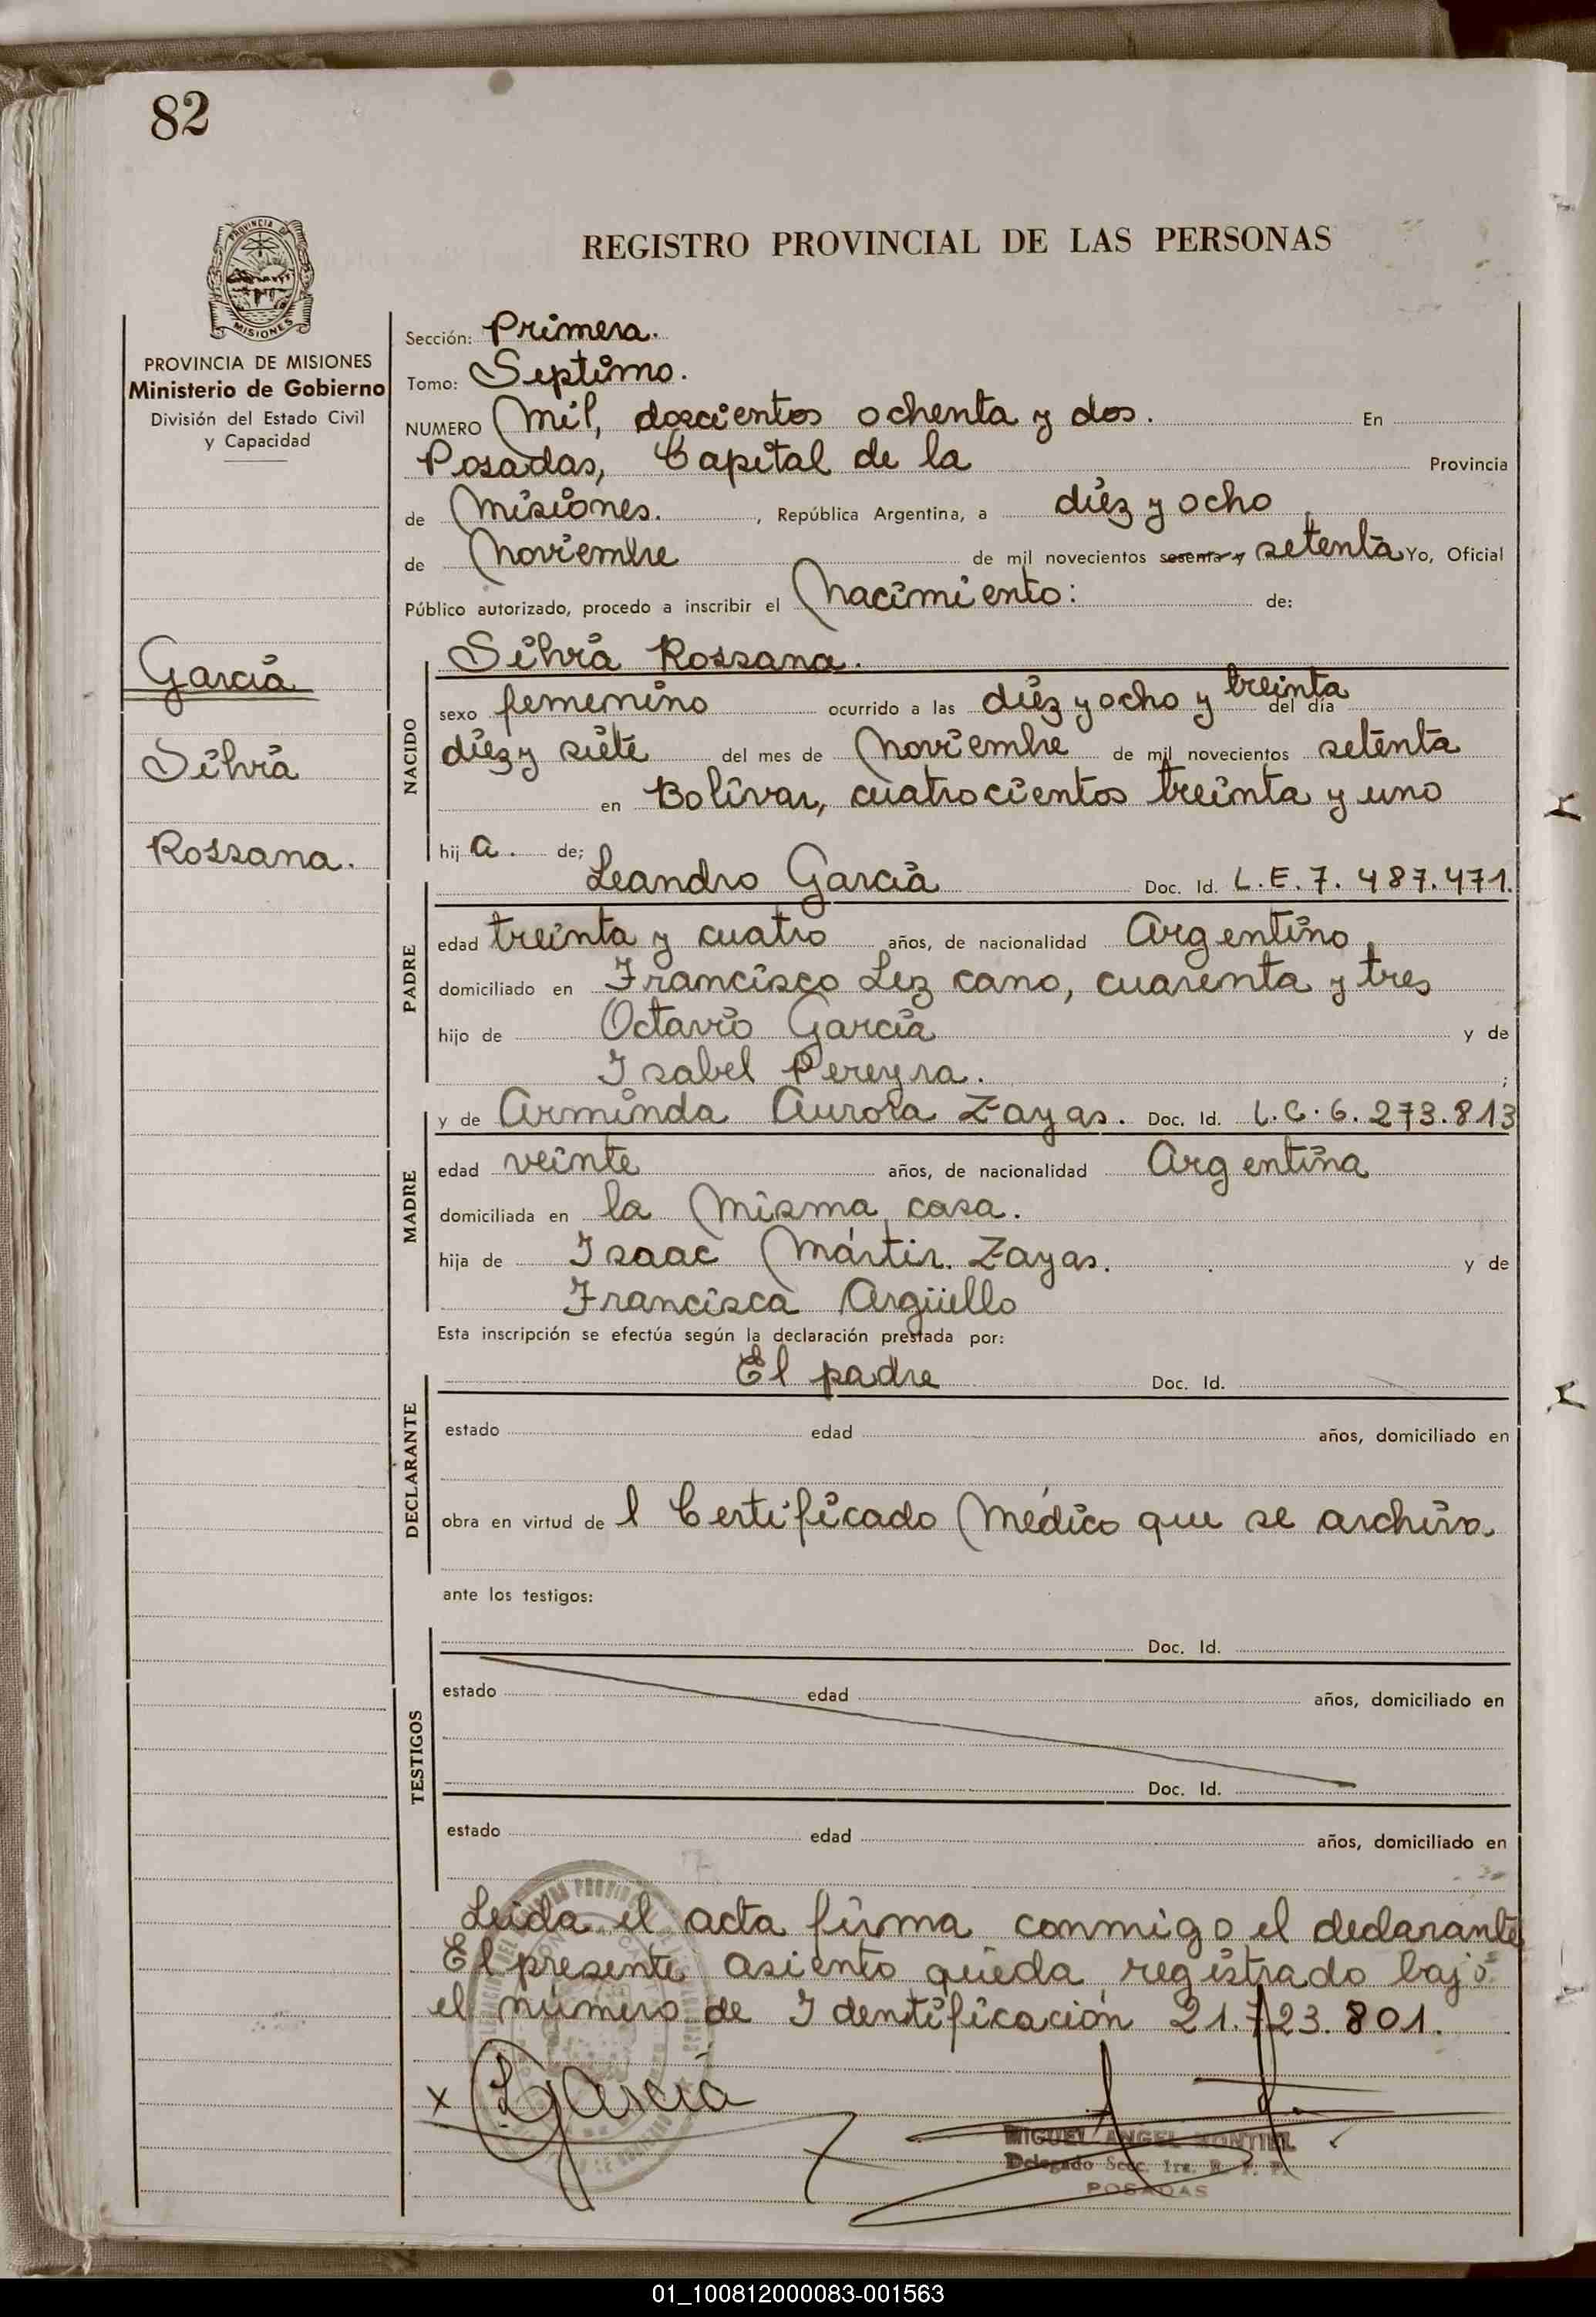 82
PROVINCIA DE
MISIONES
REGISTRO PROVINCIAL DE LAS PERSONAS
PROVINCIA DE MISIONES
Ministerio de Gobierno
División del Estado Civil
y Capacidad
García
Silvia
Rossana.
Sección: Primera.
Tomo: Septimo.
NUMERO Mil, doscientos ochenta y dos. En
Posadas, Capital de la Provincia
de Misiones. , República Argentina, a diez y ocho
de Noviembre de mil novecientos sesenta y setenta Yo, Oficial
Público autorizado, procedo a inscribir el Nacimiento: de:
NACIDO
Silvia Rossana.
sexo femenino ocurrido a las diez y ocho y treinta del día
diez y siete del mes de Noviembre de mil novecientos setenta
en Bolívar, cuatrocientos treinta y uno
hij a. de;
PADRE
Leandro García Doc. Id. L.E. 7.487.471.
edad treinta y cuatro años, de nacionalidad Argentino
domiciliado en Francisco Lez cano, cuarenta y tres
hijo de Octavio García y de
Isabel Pereyra. ;
MADRE
y de Arminda Aurora Zayas. Doc. Id. L.C. 6.273.813
edad veinte años, de nacionalidad Argentina
domiciliada en la Misma casa.
hija de Isaac Mártir. Zayas. y de
Francisca Argüello
Esta inscripción se efectúa según la declaración prestada por:
DECLARANTE
El padre Doc. Id.
estado edad años, domiciliado en
obra en virtud de l Certificado Médico que se archiva
ante los testigos:
TESTIGOS
Doc. Id.
estado edad años, domiciliado en
Doc. Id.
estado edad años, domiciliado en
Leida el acta firma conmigo el declarante
El presente asiento queda registrado bajo
el número de Identificación 21.723.801.
x LGarcía
MIGUEL ANGEL MONTIEL
Delegado Secc. 1ra. R. P. P.
POSADAS
01_100812000083-001563